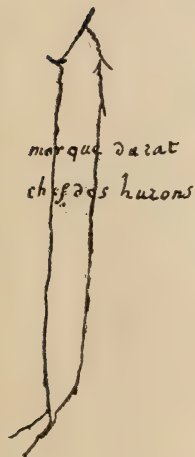 marque du rat
chef des hurons